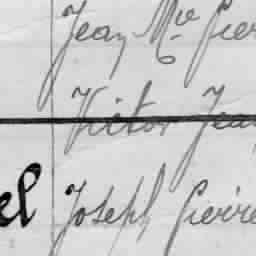 Jean Mie Pier
Victor Jean
el Joseph Pierre